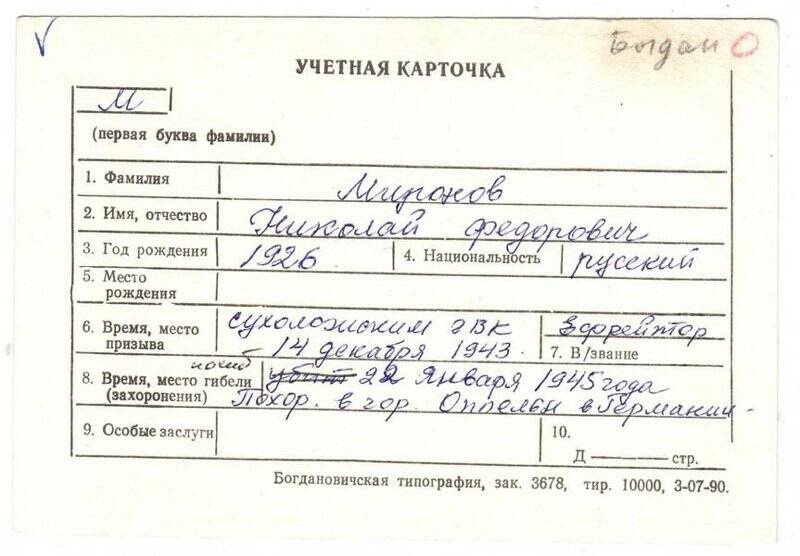 Богдан О
УЧЕТНАЯ КАРТОЧКА
М
(первая буква фамилии)
1. Фамилия Миронов
2. Имя, отчество Николай Федорович
3. Год рождения 1926 4. Национальность русский
5. Место
рождения
6. Время, место сухоложским ГВК Ефрейтор
призыва 14 декабря 1943. 7. В/звание
погиб
8. Время, место гибели убит 22 января 1945 года
(захоронения) Похор. в гор. Оппельн в Германии.
9. Особые заслуги 10.
Д — стр.
Богдановичская типография, зак. 3678, тир. 10000, 3-07-90.